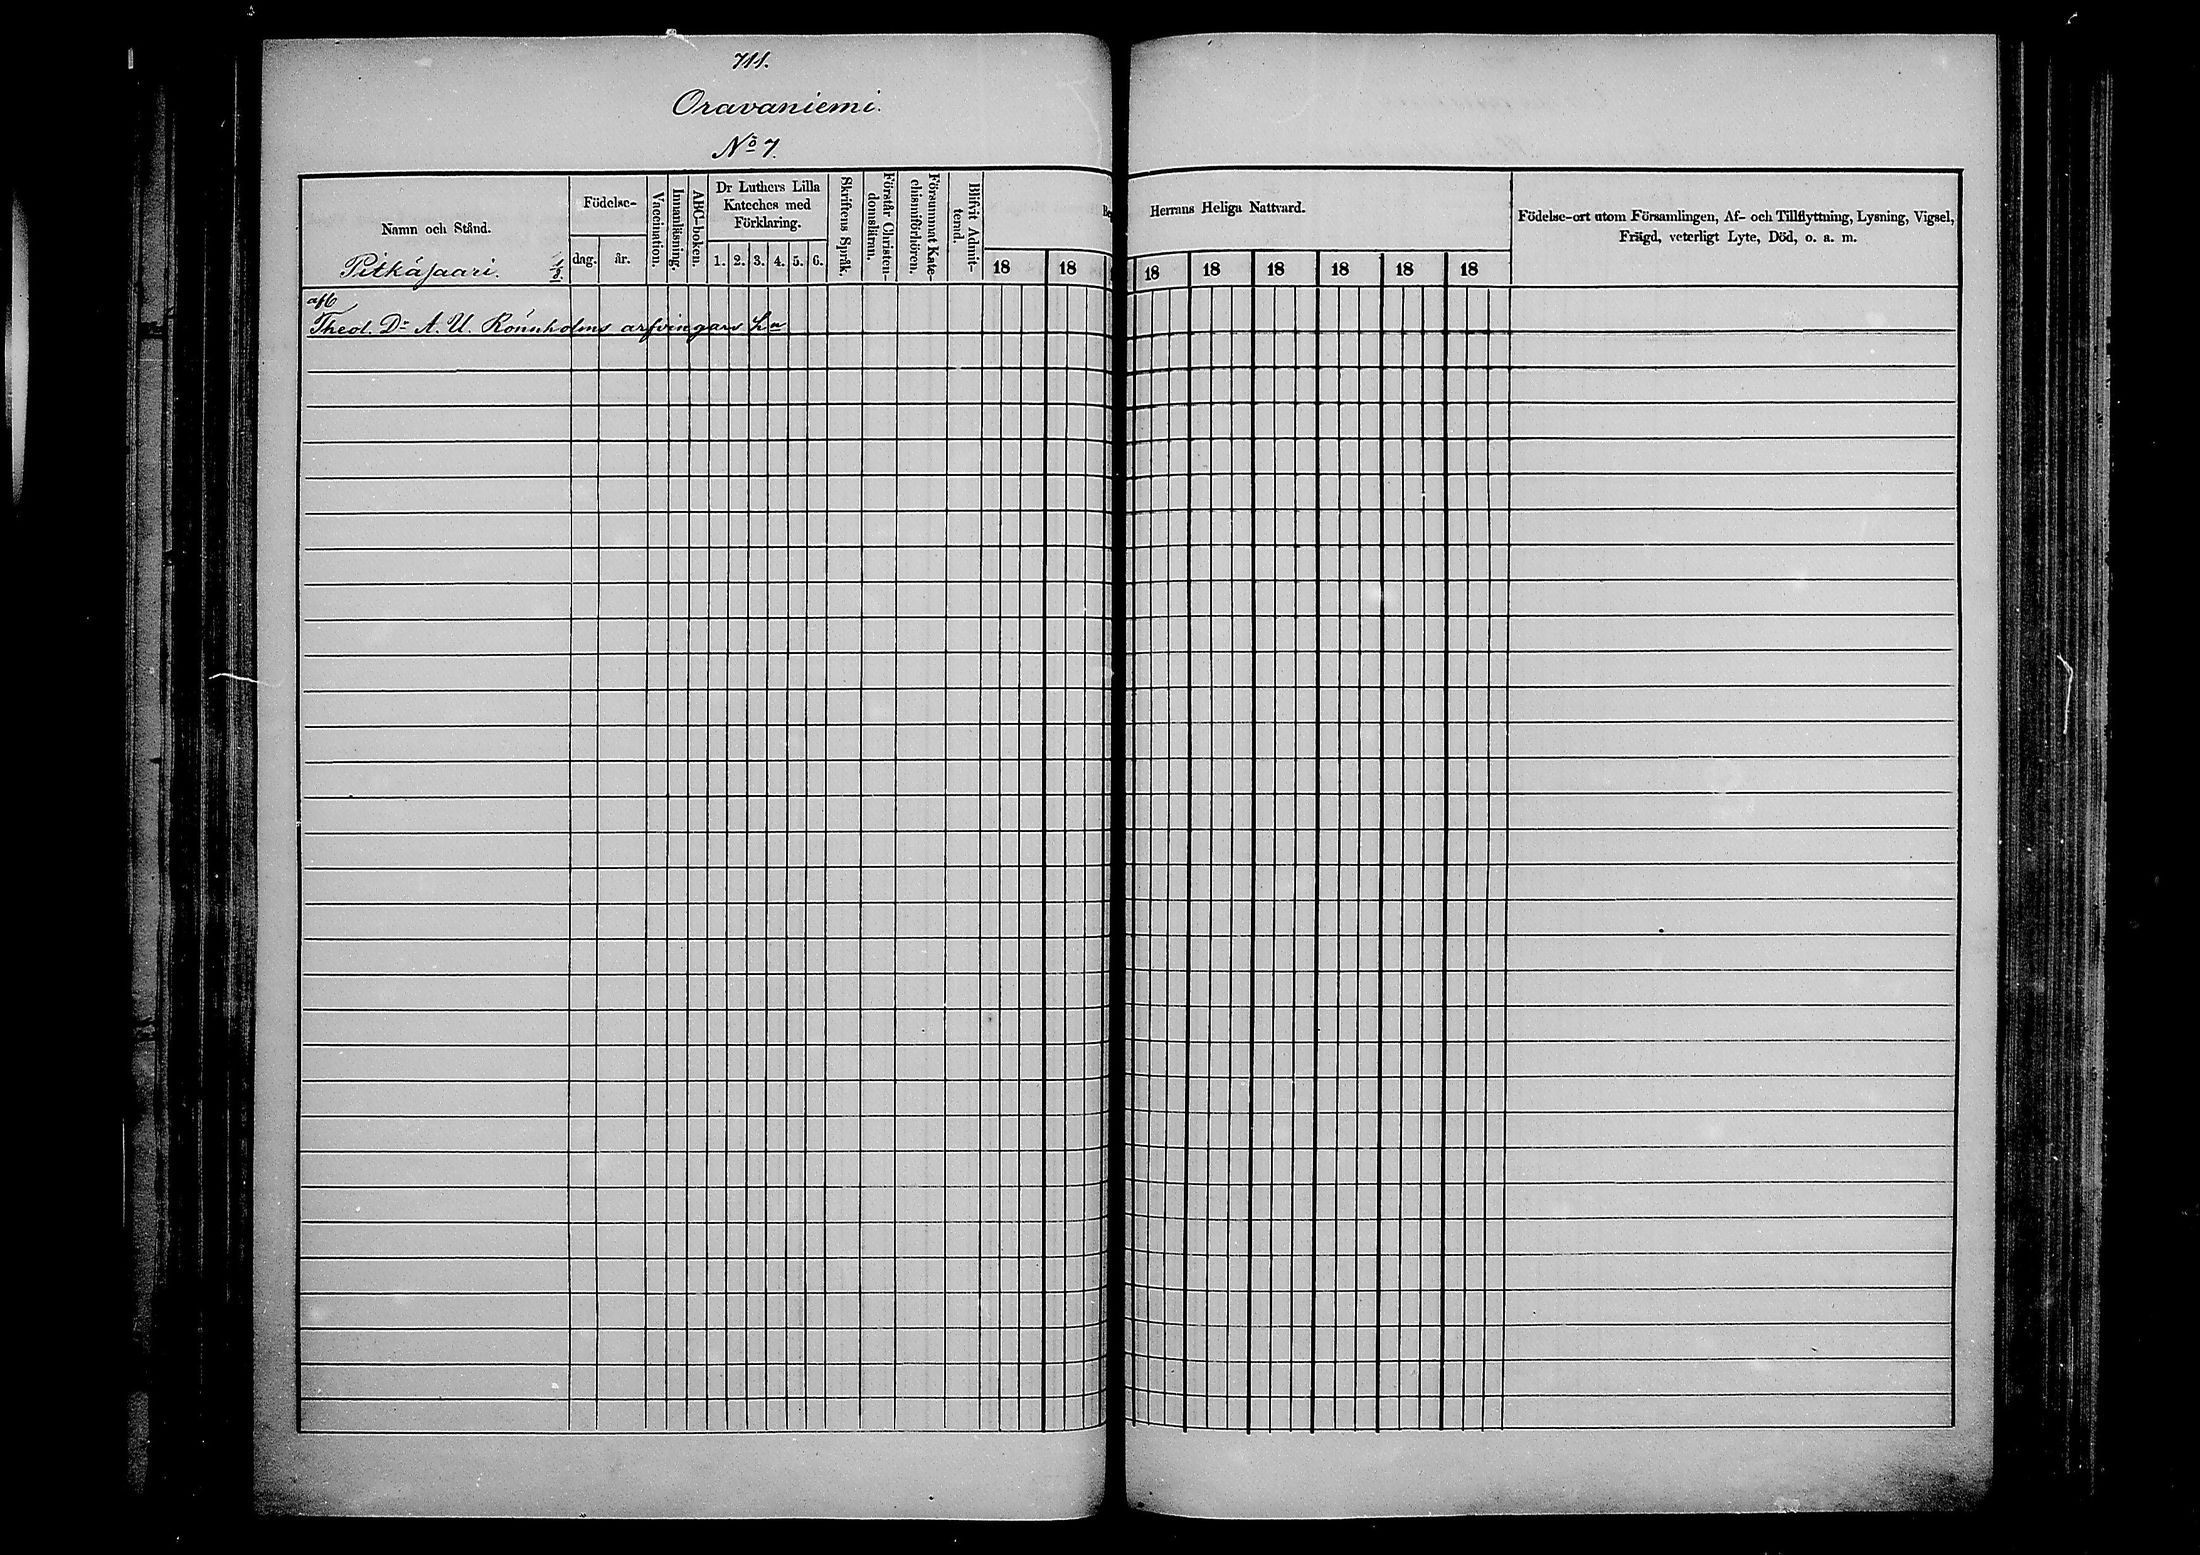 711.
Oravaniemi.
No 7.
Namn och Stånd.
Pitkäsaari.
Födelse-
dag. år.
Vaccination.
Innanläsning.
ABC-boken.
Dr Luthers Lilla
Kateches med
Förklaring.
1. 2. 3. 4. 5. 6.
Skriftens Språk.
Förstår Christen-
domsläran.
Försummat Kate-
chismiförhören.
Blifvit Admit-
terad.
18 18
Herrans Heliga Nattvard.
18 18 18 18 18 18
Födelse-ort utom Församlingen, Af- och Tillflyttning, Lysning, Vigsel,
Frägd, veterligt Lyte, Död, o. a. m.
Theol. Dr A. U. Rönnholms arfvingars